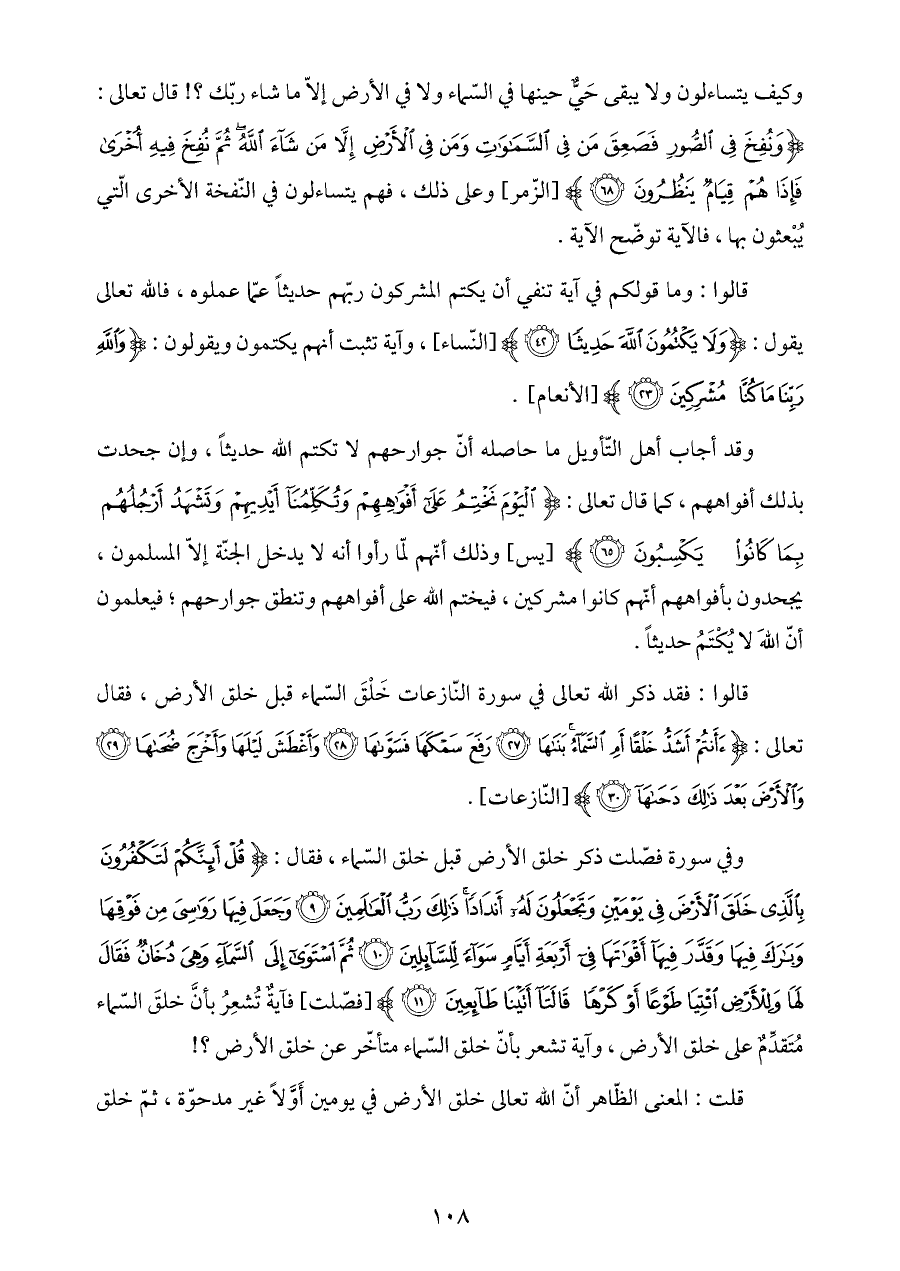 وكيف يتساءلون ولا يبقى حَيٌّ حينها في السّماء ولا في الأرض إلاّ ما شاء ربّك ؟! قال تعالى :
﴿وَنُفِخَ فِي ٱلصُّورِ فَصَعِقَ مَن فِي ٱلسَّمَٰوَٰتِ وَمَن فِي ٱلْأَرْضِ إِلَّا مَن شَآءَ ٱللَّهُ ۖ ثُمَّ نُفِخَ فِيهِ أُخْرَىٰ
فَإِذَا هُمْ قِيَامٌ يَنظُرُونَ ٦٨﴾ [الزّمر] وعلى ذلك ، فهم يتساءلون في النّفخة الأخرى الّتي
يُبْعثون بها ، فالآية توضّح الآية .
قالوا : وما قولكم في آية تنفي أن يكتم المشركون ربّهم حديثاً عمّا عملوه ، فالله تعالى
يقول : ﴿وَلَا يَكْتُمُونَ ٱللَّهَ حَدِيثًا ٤٢﴾ [النّساء] ، وآية تثبت أنهم يكتمون ويقولون : ﴿وَٱللَّهِ
رَبِّنَا مَا كُنَّا مُشْرِكِينَ ٢٣﴾ [الأنعام] .
وقد أجاب أهل التّأويل ما حاصله أنّ جوارحهم لا تكتم الله حديثاً ، وإن جحدت
بذلك أفواههم ، كما قال تعالى : ﴿ٱلْيَوْمَ نَخْتِمُ عَلَىٰٓ أَفْوَٰهِهِمْ وَتُكَلِّمُنَآ أَيْدِيهِمْ وَتَشْهَدُ أَرْجُلُهُم
بِمَا كَانُوا۟ يَكْسِبُونَ ٦٥﴾ [يس] وذلك أنّهم لمّا رأوا أنه لا يدخل الجنّة إلاّ المسلمون ،
يجحدون بأفواههم أنّهم كانوا مشركين ، فيختم الله على أفواههم وتنطق جوارحهم ؛ فيعلمون
أنّ اللهَ لا يُكْتَمُ حديثاً .
قالوا : فقد ذكر الله تعالى في سورة النّازعات خَلْقَ السّماء قبل خلق الأرض ، فقال
تعالى : ﴿ءَأَنتُمْ أَشَدُّ خَلْقًا أَمِ ٱلسَّمَآءُ ۚ بَنَىٰهَا ٢٧ رَفَعَ سَمْكَهَا فَسَوَّىٰهَا ٢٨ وَأَغْطَشَ لَيْلَهَا وَأَخْرَجَ ضُحَىٰهَا ٢٩
وَٱلْأَرْضَ بَعْدَ ذَٰلِكَ دَحَىٰهَآ ٣٠﴾ [النّازعات] .
وفي سورة فصّلت ذكر خلق الأرض قبل خلق السّماء ، فقال : ﴿قُلْ أَئِنَّكُمْ لَتَكْفُرُونَ
بِٱلَّذِي خَلَقَ ٱلْأَرْضَ فِي يَوْمَيْنِ وَتَجْعَلُونَ لَهُۥٓ أَندَادًا ۚ ذَٰلِكَ رَبُّ ٱلْعَٰلَمِينَ ٩ وَجَعَلَ فِيهَا رَوَٰسِيَ مِن فَوْقِهَا
وَبَٰرَكَ فِيهَا وَقَدَّرَ فِيهَآ أَقْوَٰتَهَا فِيٓ أَرْبَعَةِ أَيَّامٍ سَوَآءً لِّلسَّآئِلِينَ ١٠ ثُمَّ ٱسْتَوَىٰٓ إِلَى ٱلسَّمَآءِ وَهِيَ دُخَانٌ فَقَالَ
لَهَا وَلِلْأَرْضِ ٱئْتِيَا طَوْعًا أَوْ كَرْهًا قَالَتَآ أَتَيْنَا طَآئِعِينَ ١١﴾ [فصّلت] فآيةٌ تُشعِرُ بأنَّ خلقَ السّماء
مُتَقدِّمٌ على خلق الأرض ، وآية تشعر بأنّ خلق السّماء متأخّر عن خلق الأرض ؟!
قلت : المعنى الظّاهر أنّ الله تعالى خلق الأرض في يومين أَوَّلاً غير مدحوّة ، ثمّ خلق
١٠٨